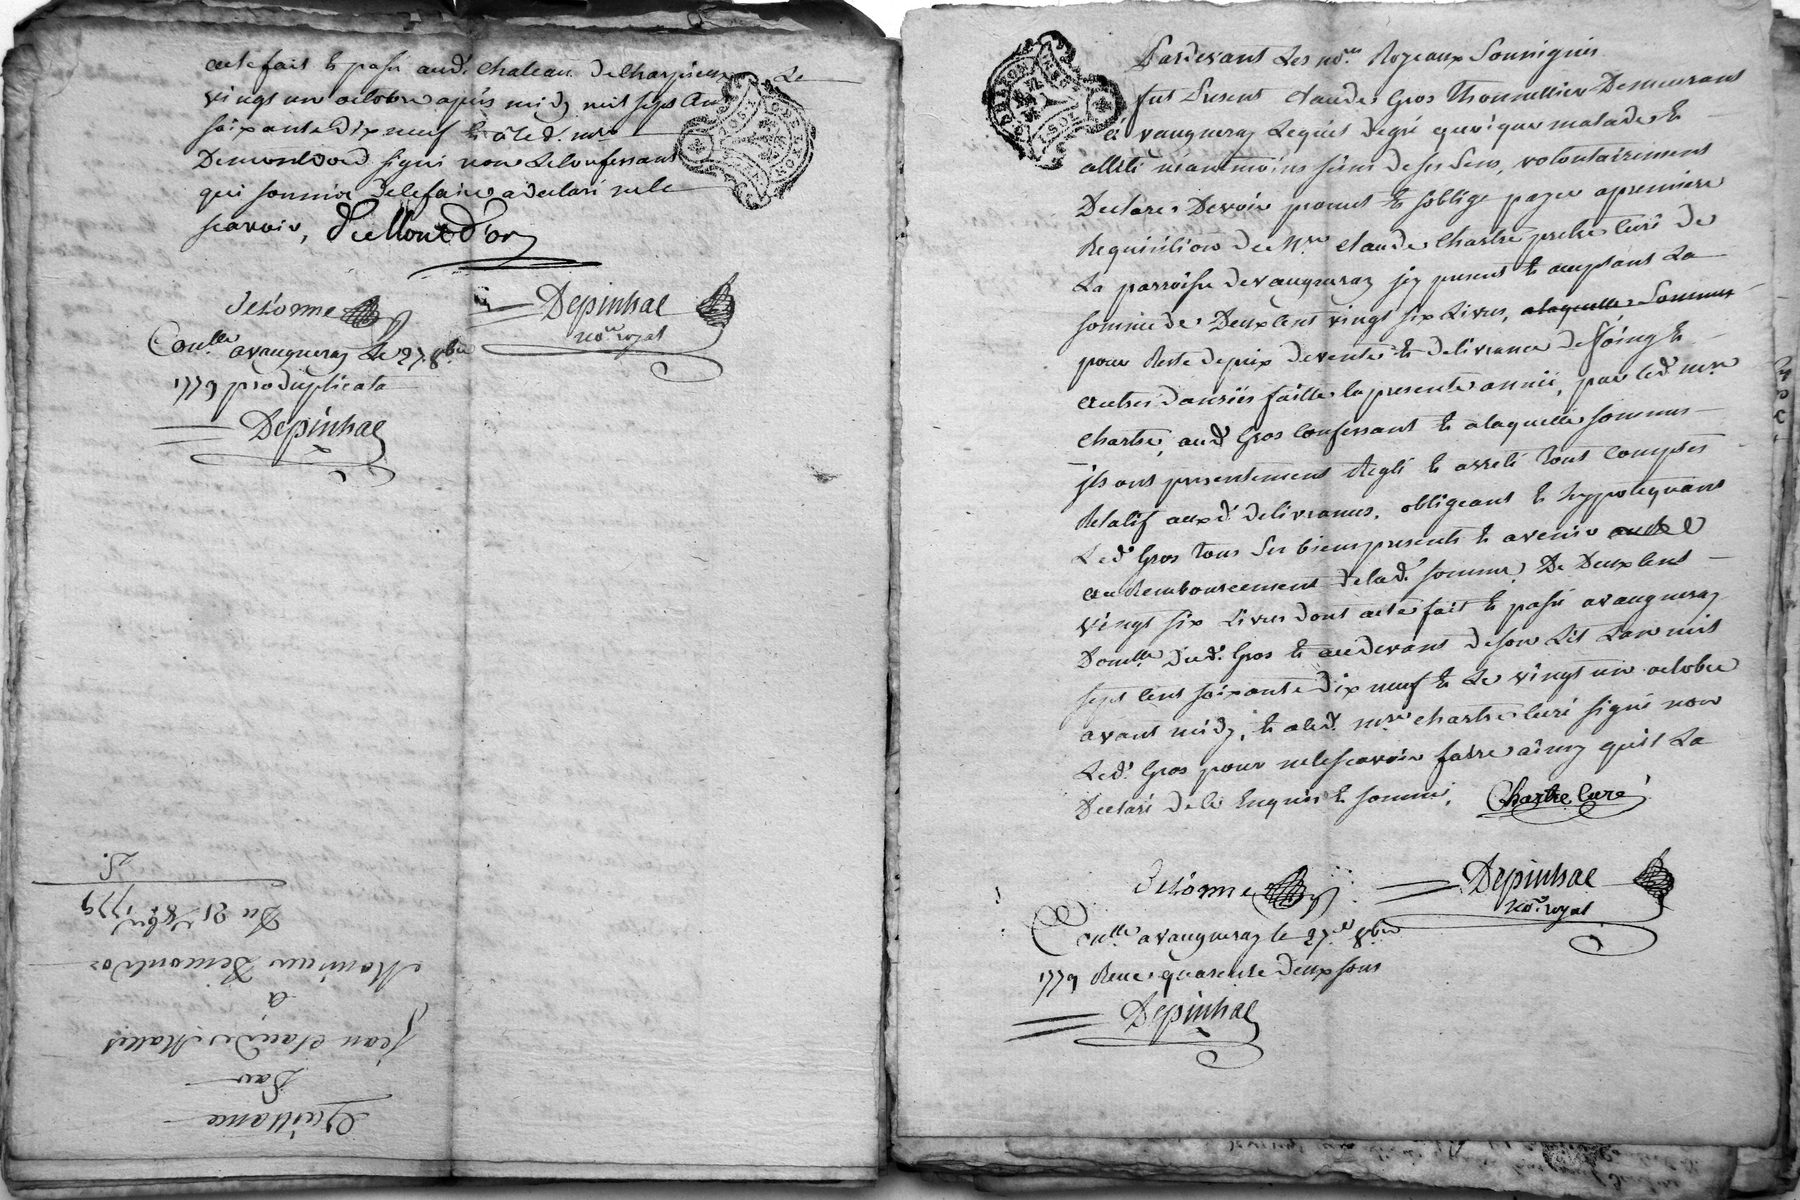 acte fait & passé aud. chateau de Charpieux Le
vingt un octobre après midy mil sept cent
soixante dix neuf & a led. mre
Demontdord signé non Le Confessant
qui sommé de le faire a declaré ne le
scavoir, De Mont d'or
Delorme Depinhac
no.re royal
Con.lle a vaugneray Le 27. 8bre
1779 pro duplicata
Depinhac
Quittance
Par
jean claude Mallet
a
Monsieur Demontdor
Du 21 8bre 1779
Pardevant Les no.res Royeaux Soussignés
fut Present claude Gros Thonnellier Demeurant
a vaugneray Lequel de gré quoique malade &
allité néantmoins sain de ses sens, volontairement
Declare Devoir promet & s'oblige payer a premiere
Requisition de Mre claude Chartre pretre Curé de
La parroisse de vaugneray jcy present & acceptant La
somme de Deux Cent vingt six Livres, alaquelle Somme
pour Reste de prix de vente & delivrance de foing &
autres danrées faitte la presente année, par led. mre
Chartre, aud. Gros Confessant & a laquelle somme
jls ont presentement Reglé & arreté Tout Comptes
Relatif auxd. delivrances, obligeant & hyppotequant
Led. Gros Tous Ses biens presents & avenir
au Remboursement de lad. somme De Deux Cent
vingt six Livres dont acte fait & passé a vaugneray
Domlle dud. Gros & au devant de son Lit L'an mil
sept Cent soixante dix neuf & Le vingt un octobre
avant midy, & a led. mre Chartre Curé signé non
Led. Gros pour ne le scavoir faire ainsy qu'il La
Declaré de ce Enquis & sommé, Chartre Curé
Delorme Depinhac
no.re royal
Con.lle a vaugneray le 27.e 8bre
1779 Reçu quarente Deux sous
Depinhac